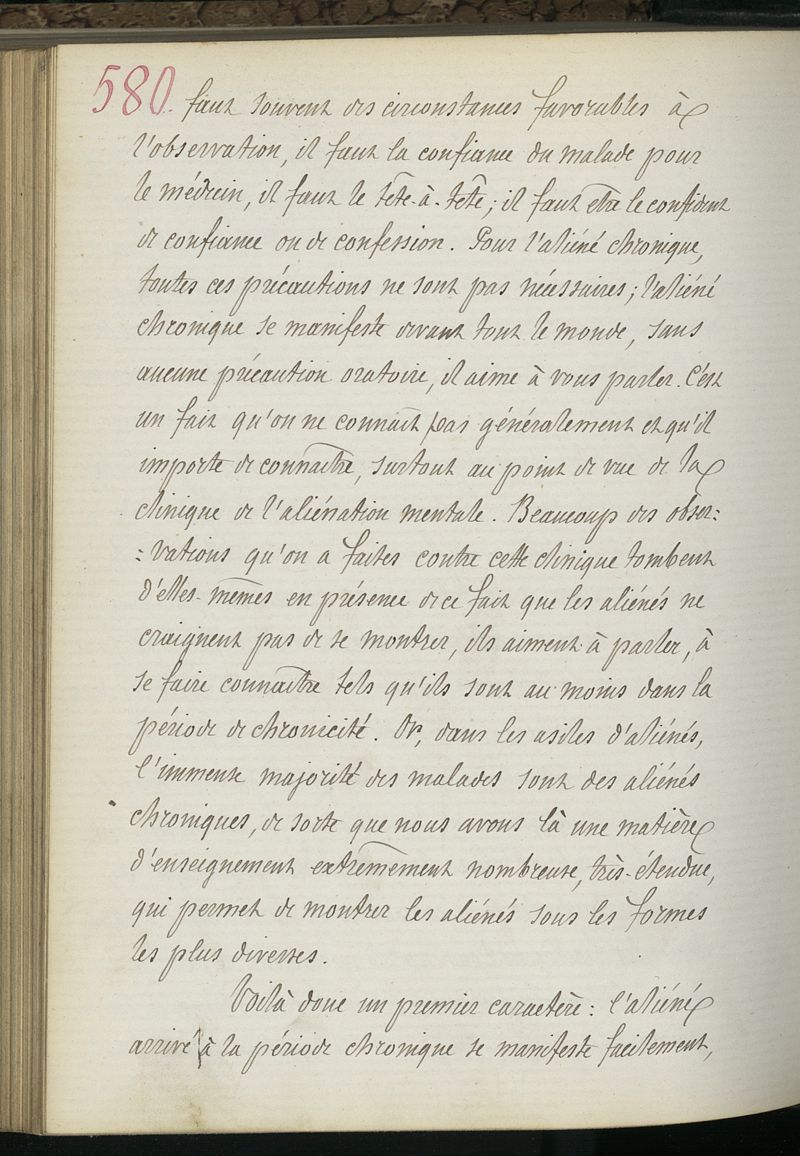 580. faut souvent des circonstances favorables à
l'observation, il faut la confiance du malade pour
le médecin, il faut le tête-à-tête; il faut être le confident
de confiance ou de confession. Pour l'aliéné chronique,
toutes ces précautions ne sont pas nécessaires; l'aliéné
chronique se manifeste devant tout le monde, sans
aucune précaution oratoire, il aime à vous parler. C'est
un fait qu'on ne connaît pas généralement et qu'il
importe de connaître, surtout au point de vue de la
clinique de l'aliénation mentale. Beaucoup des obser=
=vations qu'on a faites contre cette clinique tombent
d'elles-mêmes en présence de ce fait que les aliénés ne
craignent pas de se montrer, ils aiment à parler, à
se faire connaître tels qu'ils sont au moins dans la
période de chronicité. Or, dans les asiles d'aliénés,
l'immense majorité des malades sont des aliénés
chroniques, de sorte que nous avons là une matière
d'enseignement extrêmement nombreuse, très-étendue,
qui permet de montrer les aliénés sous les formes
les plus diverses.
Voilà donc un premier caractère: l'aliéné
arrivé à la période chronique se manifeste facilement,